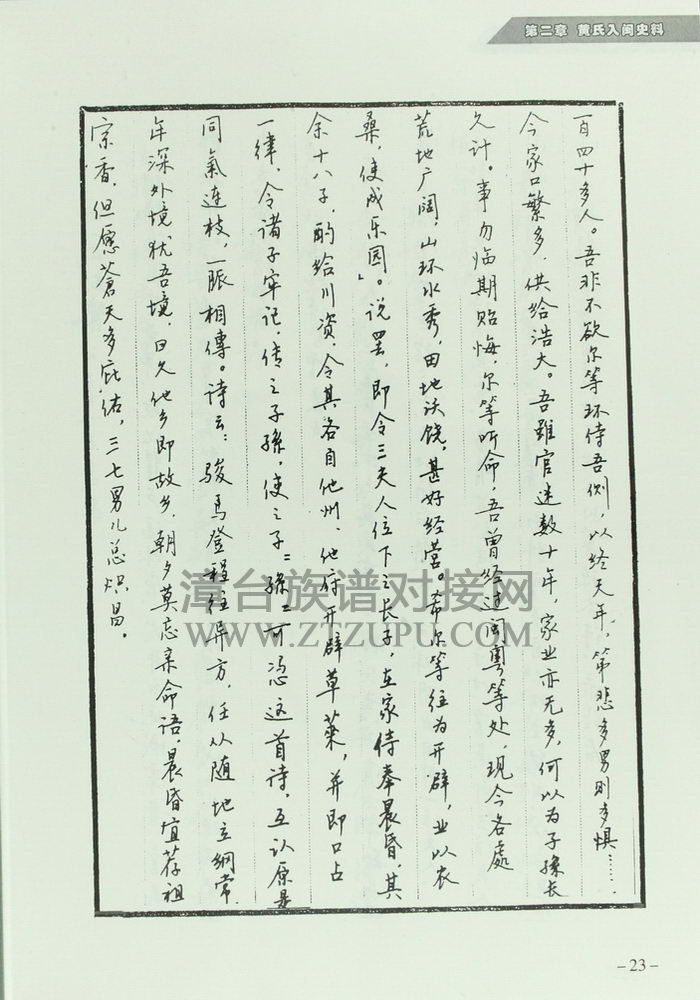 第二章 黄氏入闽史料
百四十多人。吾非不欲尔等环侍吾侧，以终天年，第悲多男则多惧……
今家口繁多，供给浩大。吾虽官迷数十年，家业亦无多，何以为子孫长
久计。事勿临期贻悔，尔等听命，吾曾经过闽粤等处，现今各處
荒地广阔，山环水秀，田地沃饶，甚好经营。希尔等往为开辟，业以农
桑，使成乐园」。说罢，即令三夫人位下之长子，在家侍奉晨昏，其
余十八子，酌给川资，令其各自他州、他府开辟草莱，并即口占
一律，令诸子牢记，传之子孫，使之子=孫=可凭这首诗，互认原是
同氣连枝，一脈相傳。诗云：骏马登程往异方，任从随地立綱常，
年深外境犹吾境，日久他乡即故乡，朝夕莫忘亲命语，晨昏宜荐祖
宗香，但愿蒼天多庇佑，三七男儿总炽昌。
漳台族谱对接网
WWW.ZTZUPU.COM
-23-